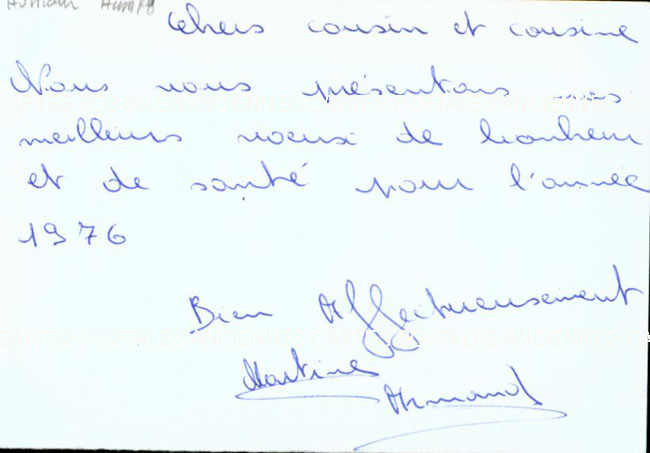 Chers cousin et cousine
Nous vous présentons nos
meilleurs voeux de bonheur
et de santé pour l'année
1976
Bien Affectueusement
Martine
Armand
CARTES POSTALES ANCIENNES
CARTES POSTALES ANCIENNES CARTES POSTALES ANCIENNES